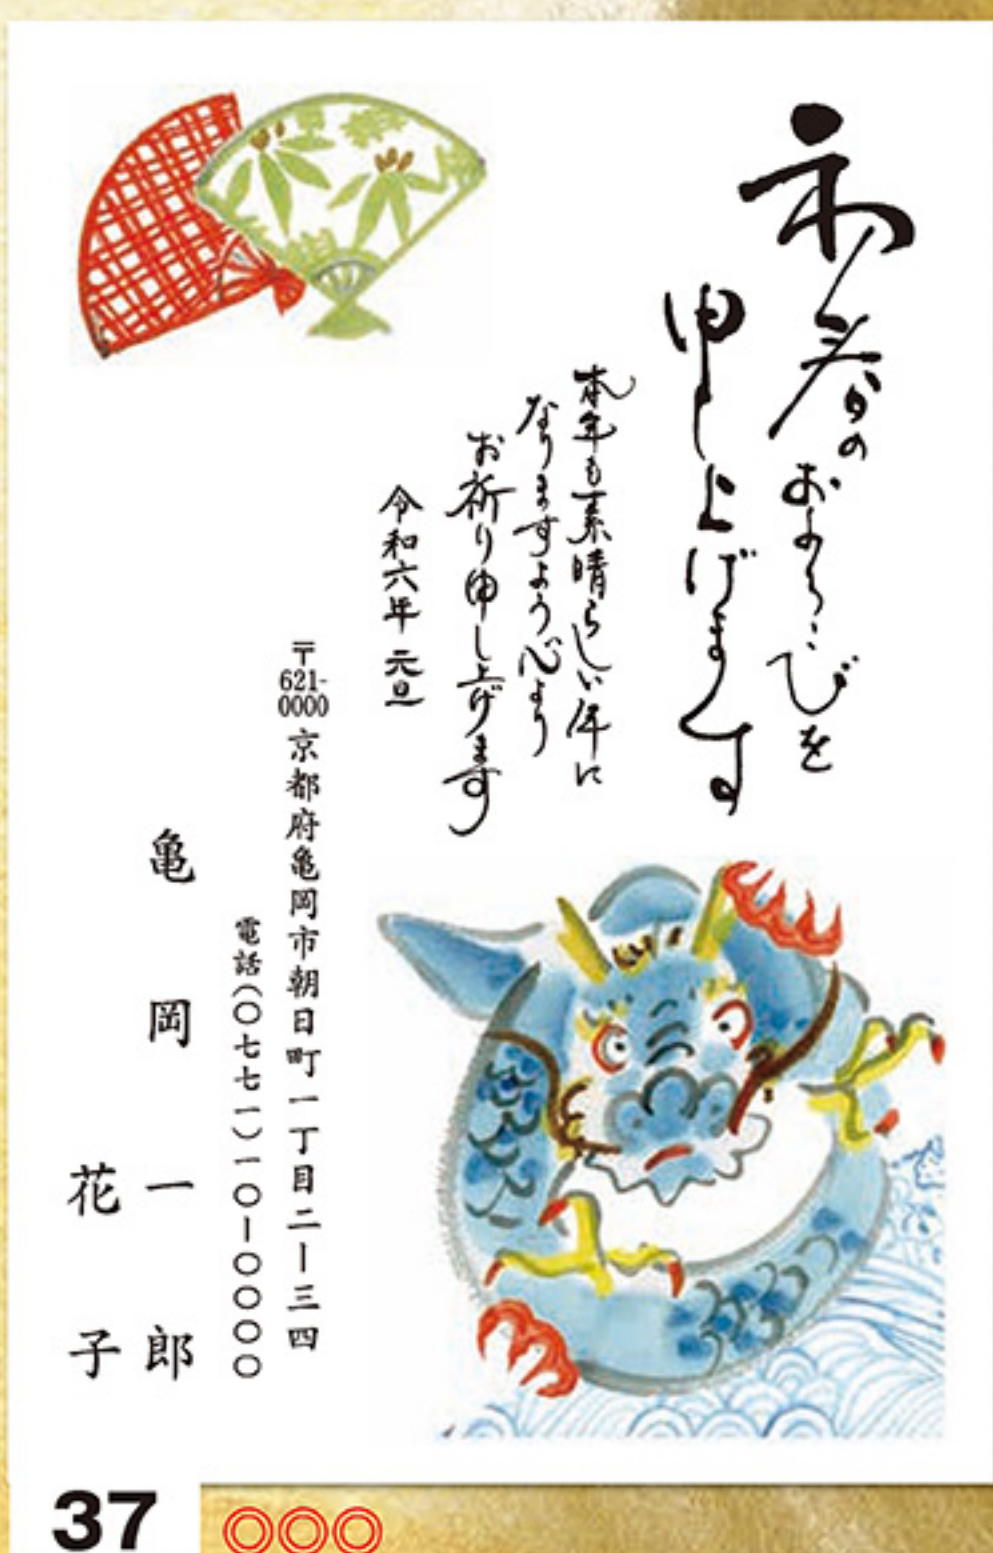 初春のおよろこびを
申し上げます
本年も素晴らしい年に
なりますよう心より
お祈り申し上げます
令和六年 元旦
〒621-0000 京都府亀岡市朝日町一丁目二ー三四
電話(〇七七一)一〇ー〇〇〇〇
亀岡 一郎
花子
37 ◎◎◎